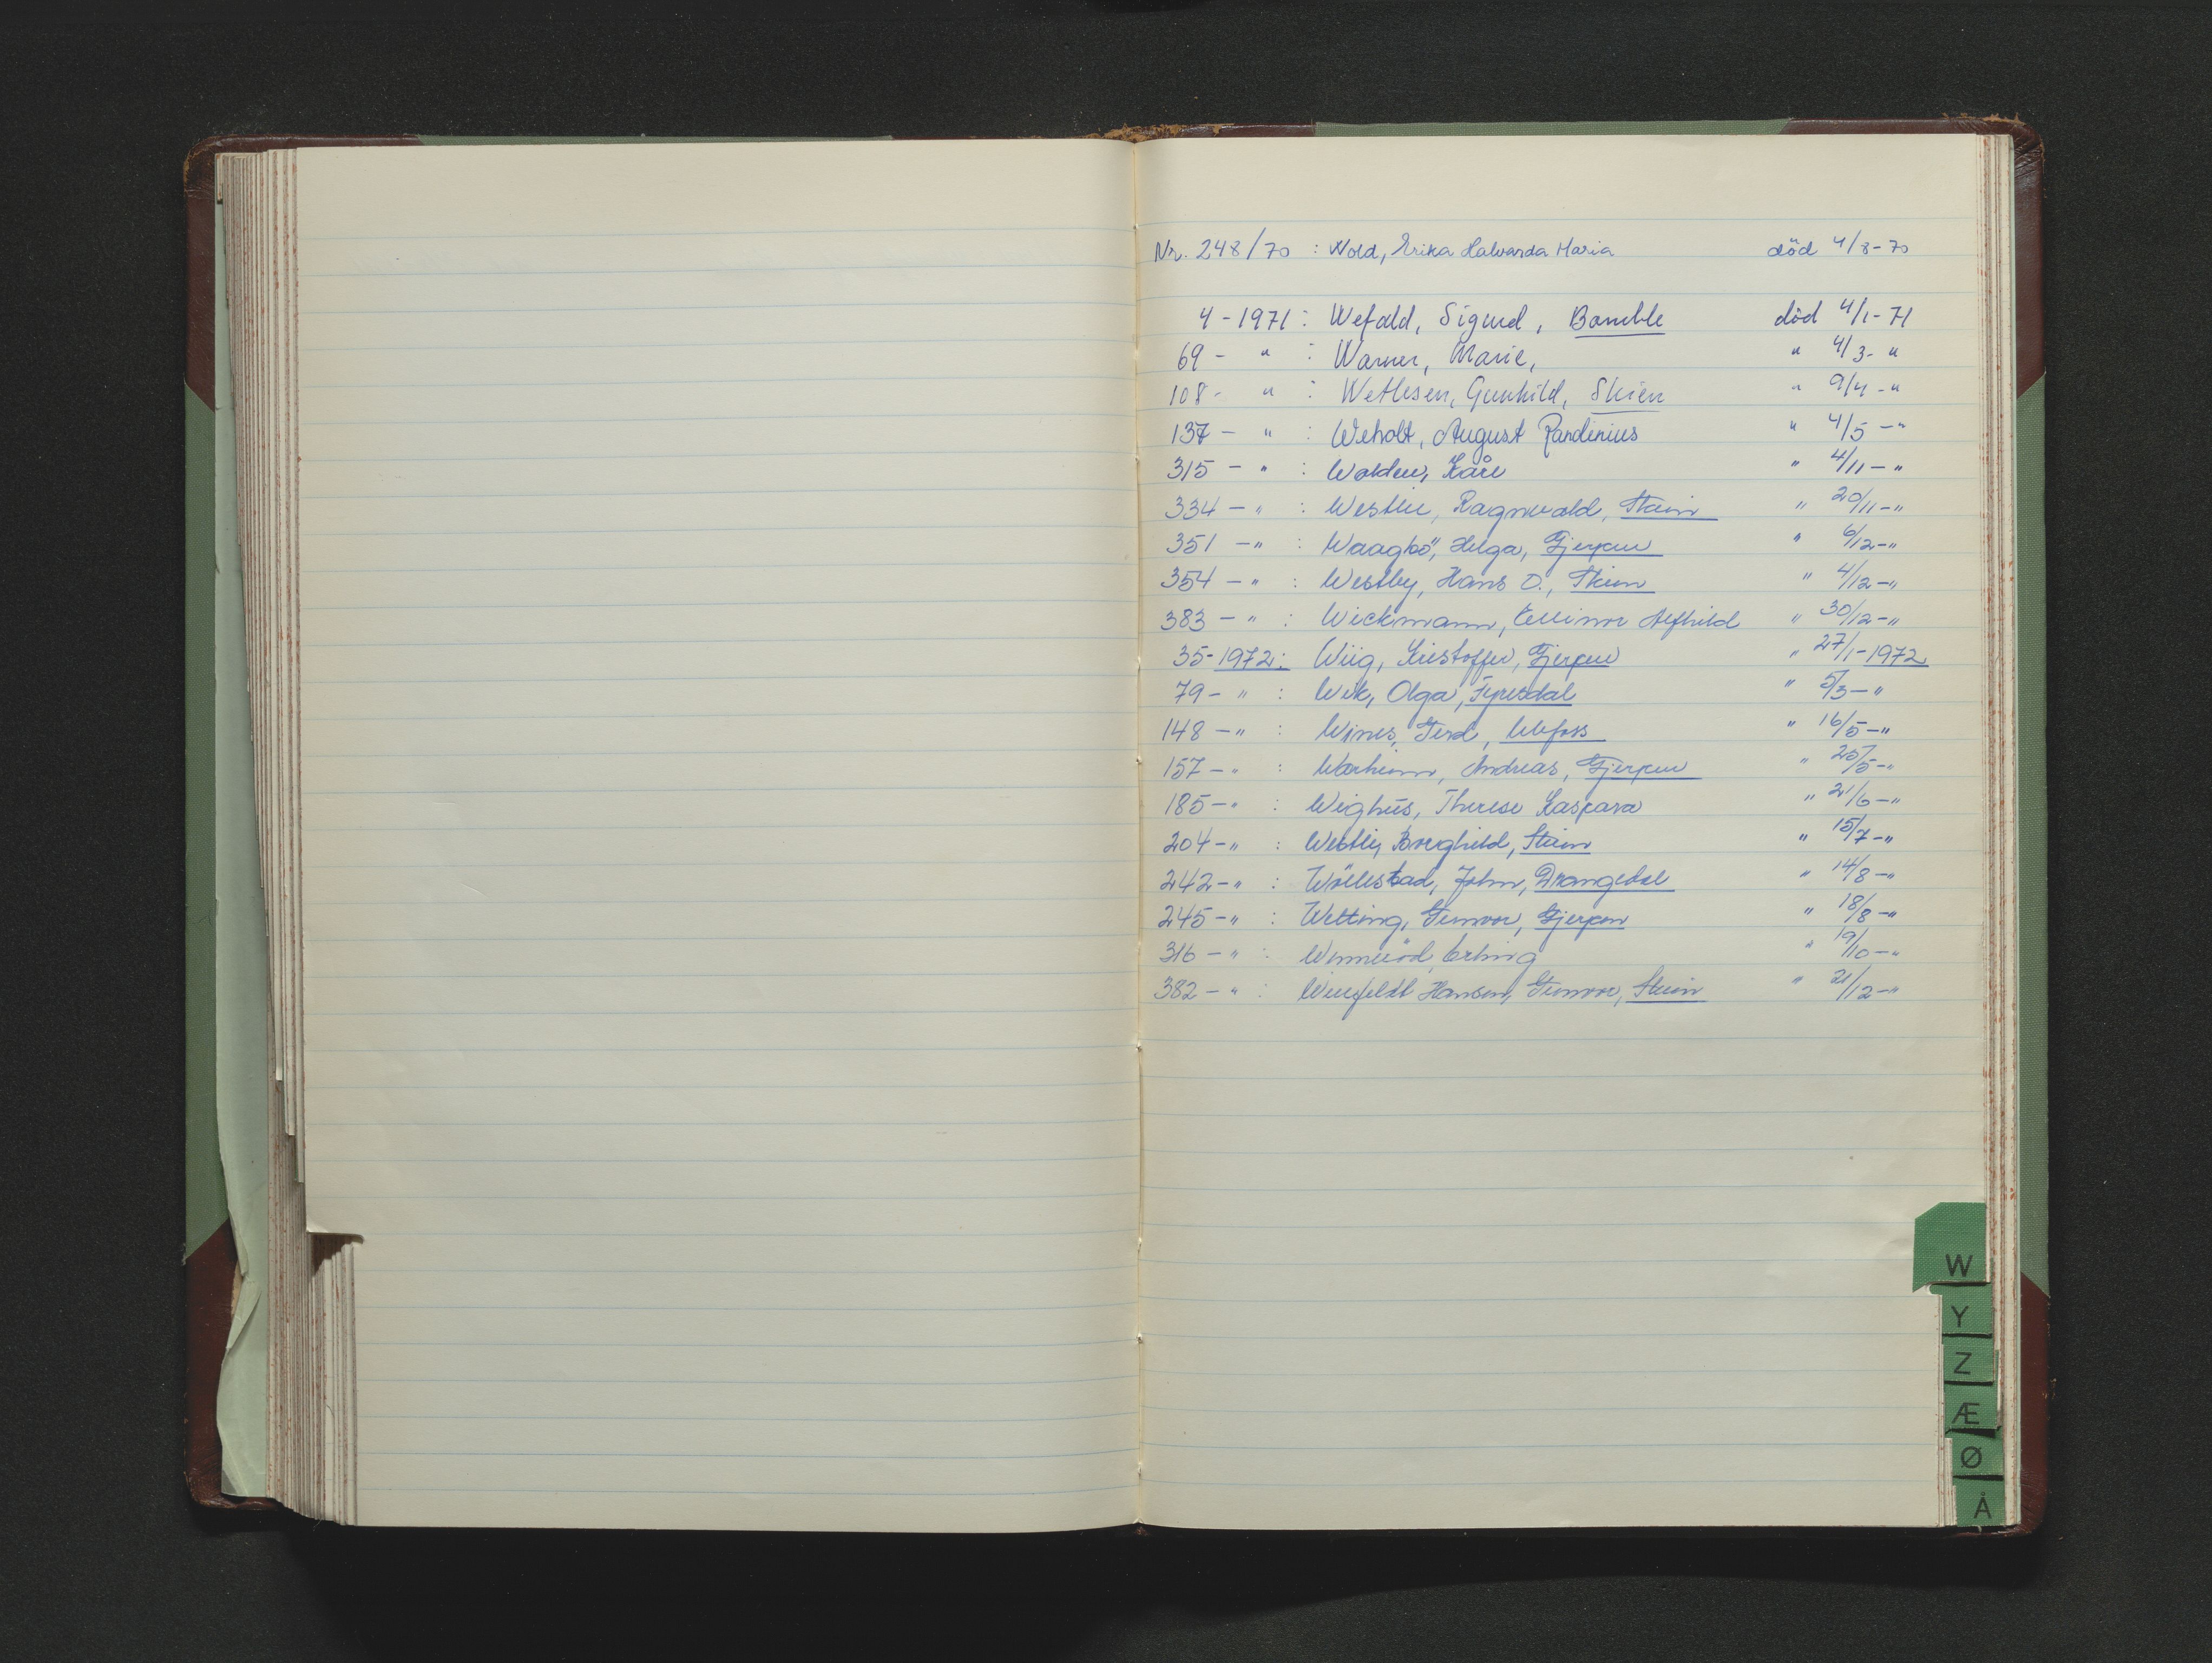 Nr. 248/70 : Wold, Erika Halvarda Maria död 4/8-70
4-1971: Wefald, Sigurd, Bamble död 4/1-71
69- " : Warner, Marie, " 4/3- "
108- " : Wetlesen, Gunhild, Skien " 9/4-"
137- " : Weholt, August Randinius " 4/5-"
315- " : Walden, Kåre " 4/11-"
334-" : Westlie, Ragnvald, Skien " 20/11-"
351-" : Waagbö, Helga, Gjerpen " 6/12-"
354-" : Westby, Hans O., Skien " 4/12-"
383-" : Wickmann, Ellinor Alfhild " 30/12-"
35-1972: Wiig, Kristoffer, Gjerpen " 27/1-1972
79-" : Wik, Olga, Fyresdal " 5/3-"
148-" : Wines, Gerd, Ulefoss " 16/5-"
157-" : Andreas, Gjerpen " 25/5-"
185-" : Wighus, Therese Kaspara " 21/6-"
204-" : Westlie, Borghild, Skien " 15/7-"
242-" : Wöllestad, John, Drangedal " 14/8-"
245-" : Wetting, Gunvor, Gjerpen " 18/8-"
316-" : Erling " 19/10-"
382-" : Hansen, Gunvor, Skien " 21/12-"
W
Y
Z
Æ
Ø
Å